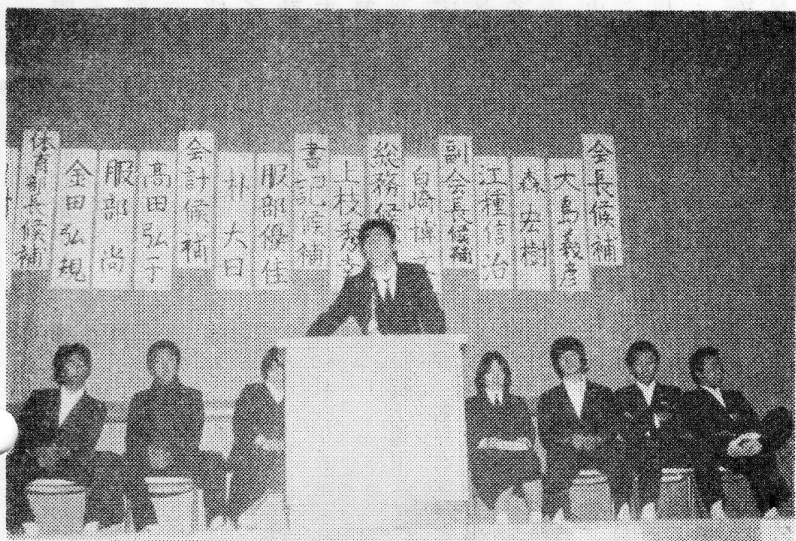 会長候補
大島義彦
森宏樹
江種信治
副会長候補
白崎博
総務候
上枝秀
書記候補
服部優佳
朴大日
会計候補
高田弘子
服部尚
金田弘規
体育部長候補